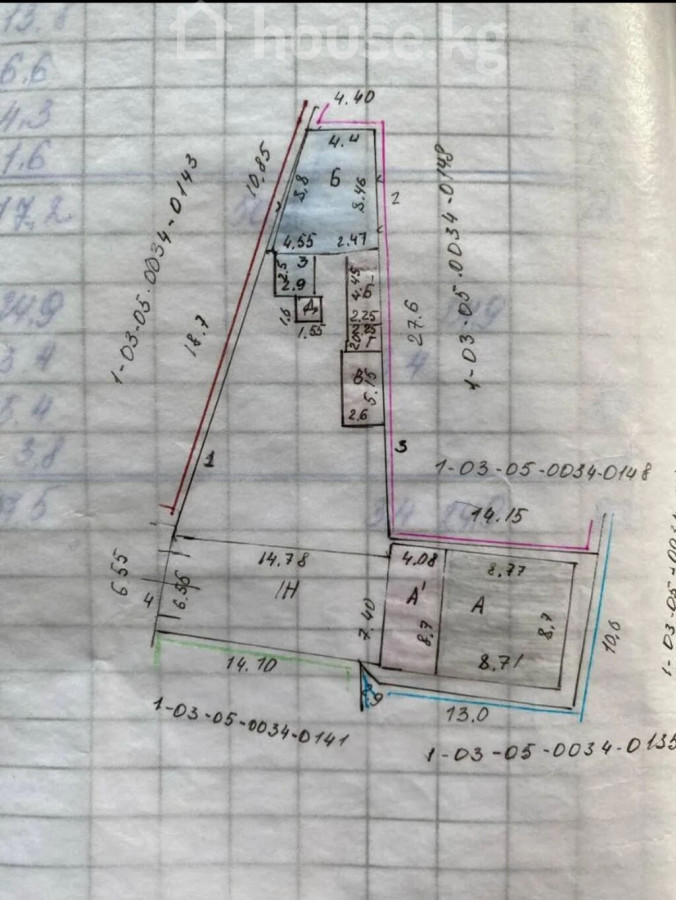 house.kg
13.8
6.6
4.3
1.6
17.2
4.40
4.4
10.85
5.8
Б
5.46
2
1-03-05-0034-0143
1-03-05-0034-0148
4.55
2.47
2.5
3
2.9
4.45
Б'
2.25
1.6
Д
1.55
18.7
27.6
24.9
3.4
5.4
3.8
В
5.15
2.6
1
3
1-03-05-0034-0148
14.15
14.78
4.08
8.77
6.55
4
6.56
1Н
А'
А
7.40
8.7
8.7
8.71
10,6
14.10
13.0
1-03-05-0034-0141
1-03-05-0034-0135